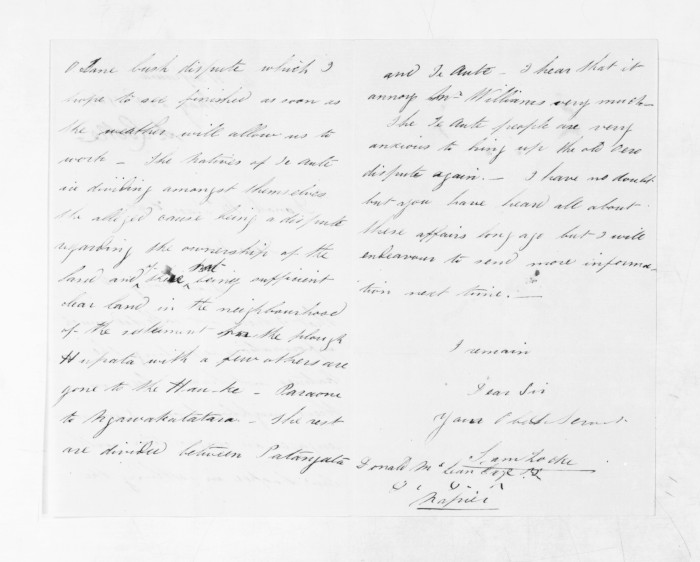 Otane bush dispute which I
hope to see finished as soon as
the weather will allow us to
work – The Natives of Te Aute
are dividing amongst themselves
the alleged cause being a dispute
regarding the ownership of the
land and of there not being sufficient
clear land in the neighbourhood
of the settlement for the plough
Hupata with a few others are
gone to the Hau-ke – Paraone
to Ngawakatatara – The rest
are divided between Patangata
and Te Aute – I hear that it
annoys Mr Williams very much –
The Te Aute people are very
anxious to bring up the old
dispute again. – I have no doubt
but you have heard all about
these affairs long ago but I will
endeavour to send more informa-
tion next time. –
I remain
Dear Sir
Your Obdt Servt
Saml Locke
Donald McLean Esqr
Napier